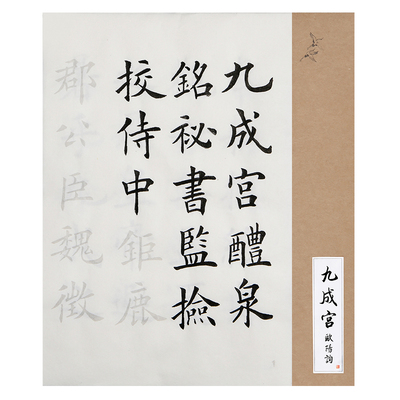 九成宮醴泉
銘祕書監撿
挍侍中鉅鹿
郡公臣魏徵
九成宮
歐陽詢